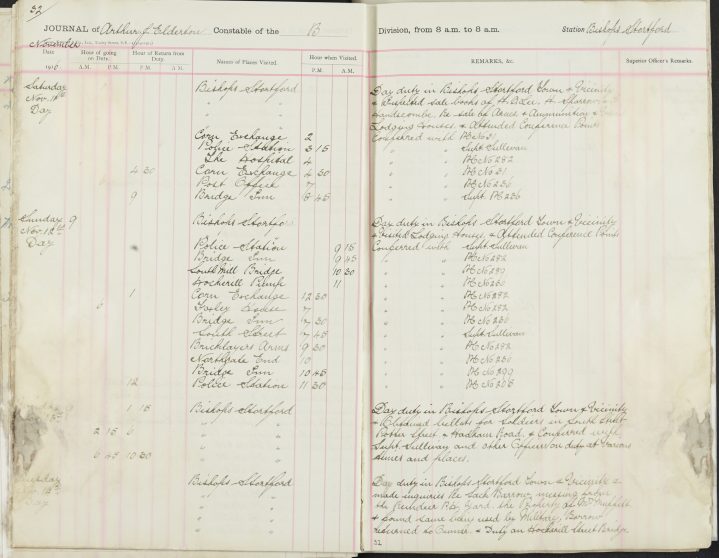 32
JOURNAL of Arthur S Elderton Constable of the B Division, from 8 a.m. to 8 a.m. Station Bishops Stortford
November
Date Hour of going on Duty. Hour of Return from Duty. Names of Places Visited. Hour when Visited. REMARKS, &c. Superior Officer's Remarks.
191 A.M. P.M. A.M. P.M. P.M. A.M.
Saturday Bishops Stortford Day duty in Bishops Stortford Town & Vicinity
Nov. 11th " " & sale books of
Day " " Handscombe Re sale of Arms & Ammunition &
" " Lodging Houses & Attended Conference Points
Corn Exchange 2 Conferred with PC No 31
Police Station 3 15 " " Supt Sullivan
The Hospital 4 " " PC No 282
4 30 Corn Exchange 4 30 " " PC No 31
Post Office 7 " " PC No 256
9 Bridge Inn 8 45 " " Supt. PC 256
Sunday 9 Bishops Stortford Day duty in Bishops Stortford Town & Vicinity
Nov. 12th " " & Visited Lodging Houses, & Attended Conference Points
Day Police Station 9 15 Conferred with Supt Sullivan
Bridge Inn 9 45 " " PC No 282
South Mill Bridge 10 30 " " PC No 289
Hockerill Pump 11 " " PC No 256
1 Corn Exchange 12 30 " " PC No 282
6 House 7 " " PC No 282
Bridge Inn 7 30 " " PC No 256
South Street 7 45 " " Supt Sullivan
Bricklayers Arms 9 30 " " PC No 282
Northgate End 10 " " PC No 256
Bridge Inn 10 45 " " PC No 299
12 Police Station 11 30 " " PC No 268
9 1 15 Bishops Stortford Day duty in Bishops Stortford Town & Vicinity
" " & Obtained billets for Soldiers in South Street
2 15 6 " " Potter Street & Hadham Road, & Conferred with
" " Supt Sullivan and other Officers on duty at various
6 45 10 30 " " times and places.
Tuesday Bishops Stortford Day duty in Bishops Stortford Town & Vicinity &
Nov. " " made inquiries Re Sack Barrow missing from
Day " " the Ry. Yard. the Property of Mr
" " & found same being used by Military, Barrow
" " returned to Owner. & Duty on Hockerill Street Bridge.
32